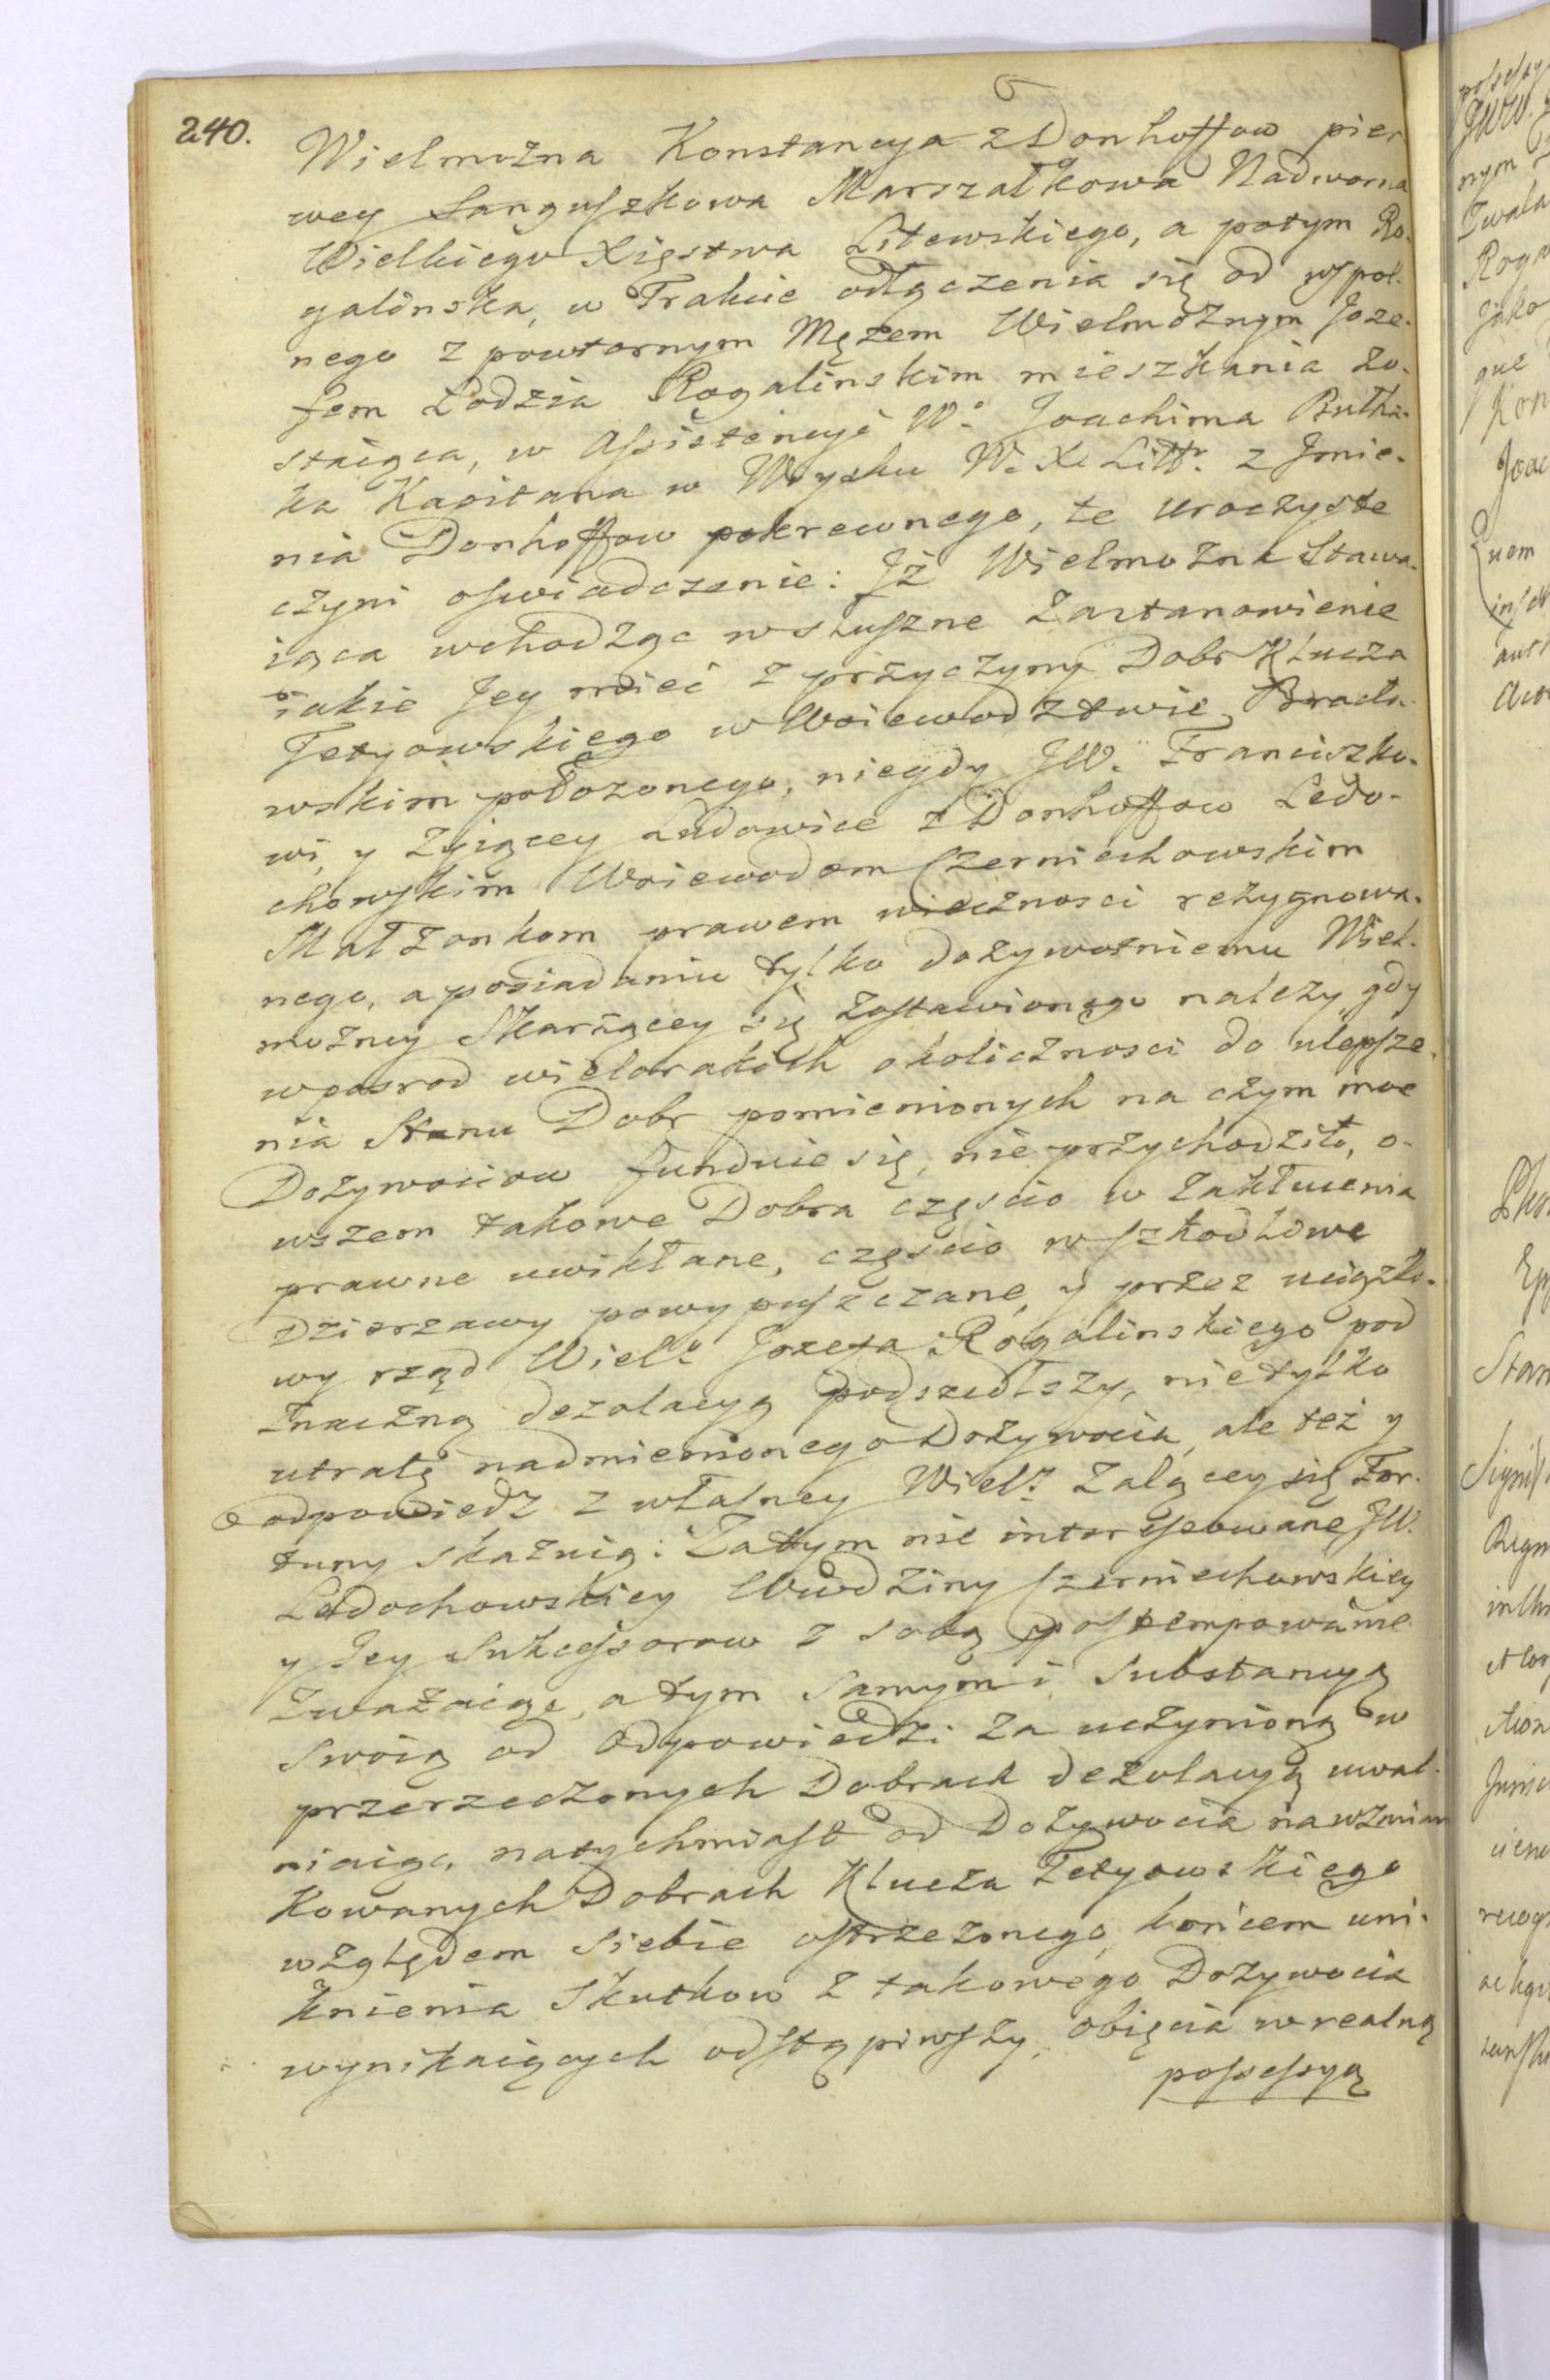 240.
Wielmożna Konstancya z Donhoffow pier
wey Sanguszkowa Marszałkowa Nadworna
Wielkiego Xięstwa Litewskiego, a potym Ro-
galinska, w Trakcie odłączenia się od wspol-
nego z powtornym Mężem Wielmożnym Joze-
fem Łodzia Rogalinskim mieszkania zo-
staiąca, w Assistencyi W: Joachima Rutka-
ka Kapitana w Woysku W. X. Litt: z Jmie-
nia Donhoffow pokrewnego, te uroczyste
czyni oswiadczenie: Jż Wielmożna Stawa-
iąca wchodząc w słuszne zastanowienie
iakie Jey mieć z przyczyny Dobr Klucza
Tetyowskiego w Woiewodztwie Bracła-
wskim położonego, niegdy JW. Franciszko-
wi, y żyiącey Ludowice z Donhoffow Ledo-
chowskim Woiewodom Czerniechowskim
Małżonkom prawem wieczności rezygnowa-
nego, a posiadaniu tylko dożywotniemu Wiel-
możney Skarżącey się zostawionego należy, gdy
wposrod wielorakich okoliczności do ulepsze-
nia Stanu Dobr pomienionych na czym moc
Dożywociow funduie się, nie przychodziło, o-
wszem takowe Dobra częścio w Zakłucenia
prawne uwikłane, częścio w szkodliwe
Dzierżawy powypuszczane, y przez uciążli-
wy rząd Wiel: Jozefa Rogalinskiego pod
znaczną dezolacyą podszedłszy, nietylko
utratę nadmienionego Dożywocia, ale też y
odpowiedź z własney Wiel: Żalącey się For-
tuny skazuią: Zatym nie interessowane JW.
Ledochowskiey Wwdziny Czerniechowskiey
y Jey Sukcessorow z sobą postempowanie
zważaiąc, a tym samym i Substancyą
swoią od Odpowiedzi za uczynioną w
przerzeczonych Dobrach dezolacyą uwal-
niaiąc, natychmiast od Dożywocia na wzmian
kowanych Dobrach Klucza Tetyowskiego
względem siebie ostrzeżonego, końcem uni-
knienia Skutkow z takowego Dożywocia
wynikaiących odstąpiwszy, obięcia w realną
possessyą